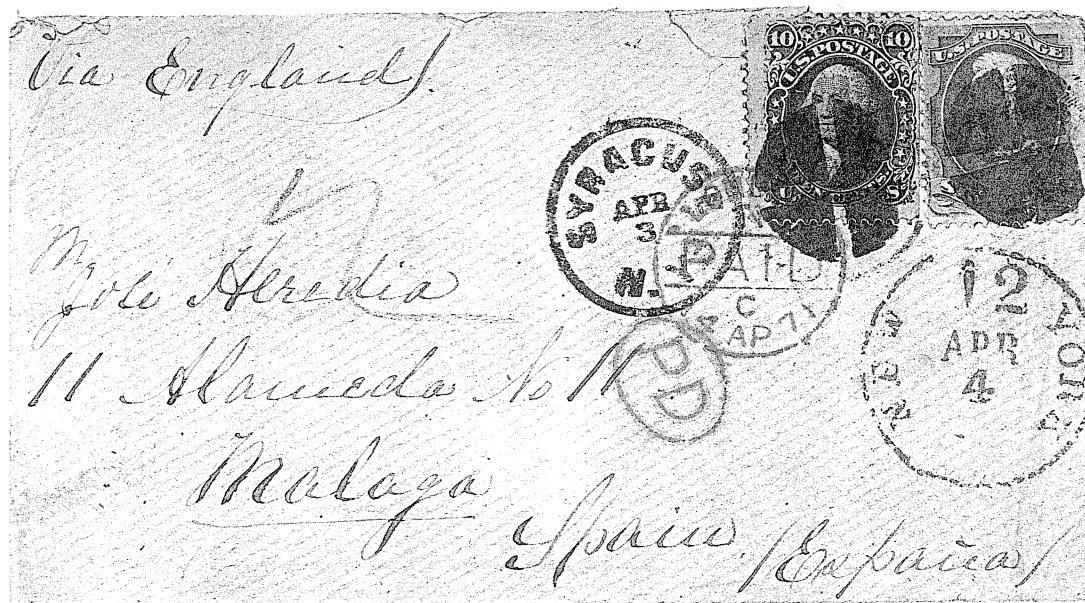 Via England
10 10
U.S. POSTAGE
U.S. POSTAGE
SYRACUSE
APR
3
N.
PAID
C
AP 71
PD
NEW YORK
12
APR
4
José Heredia
11 Alameda No 11
Malaga
Spain
(España)